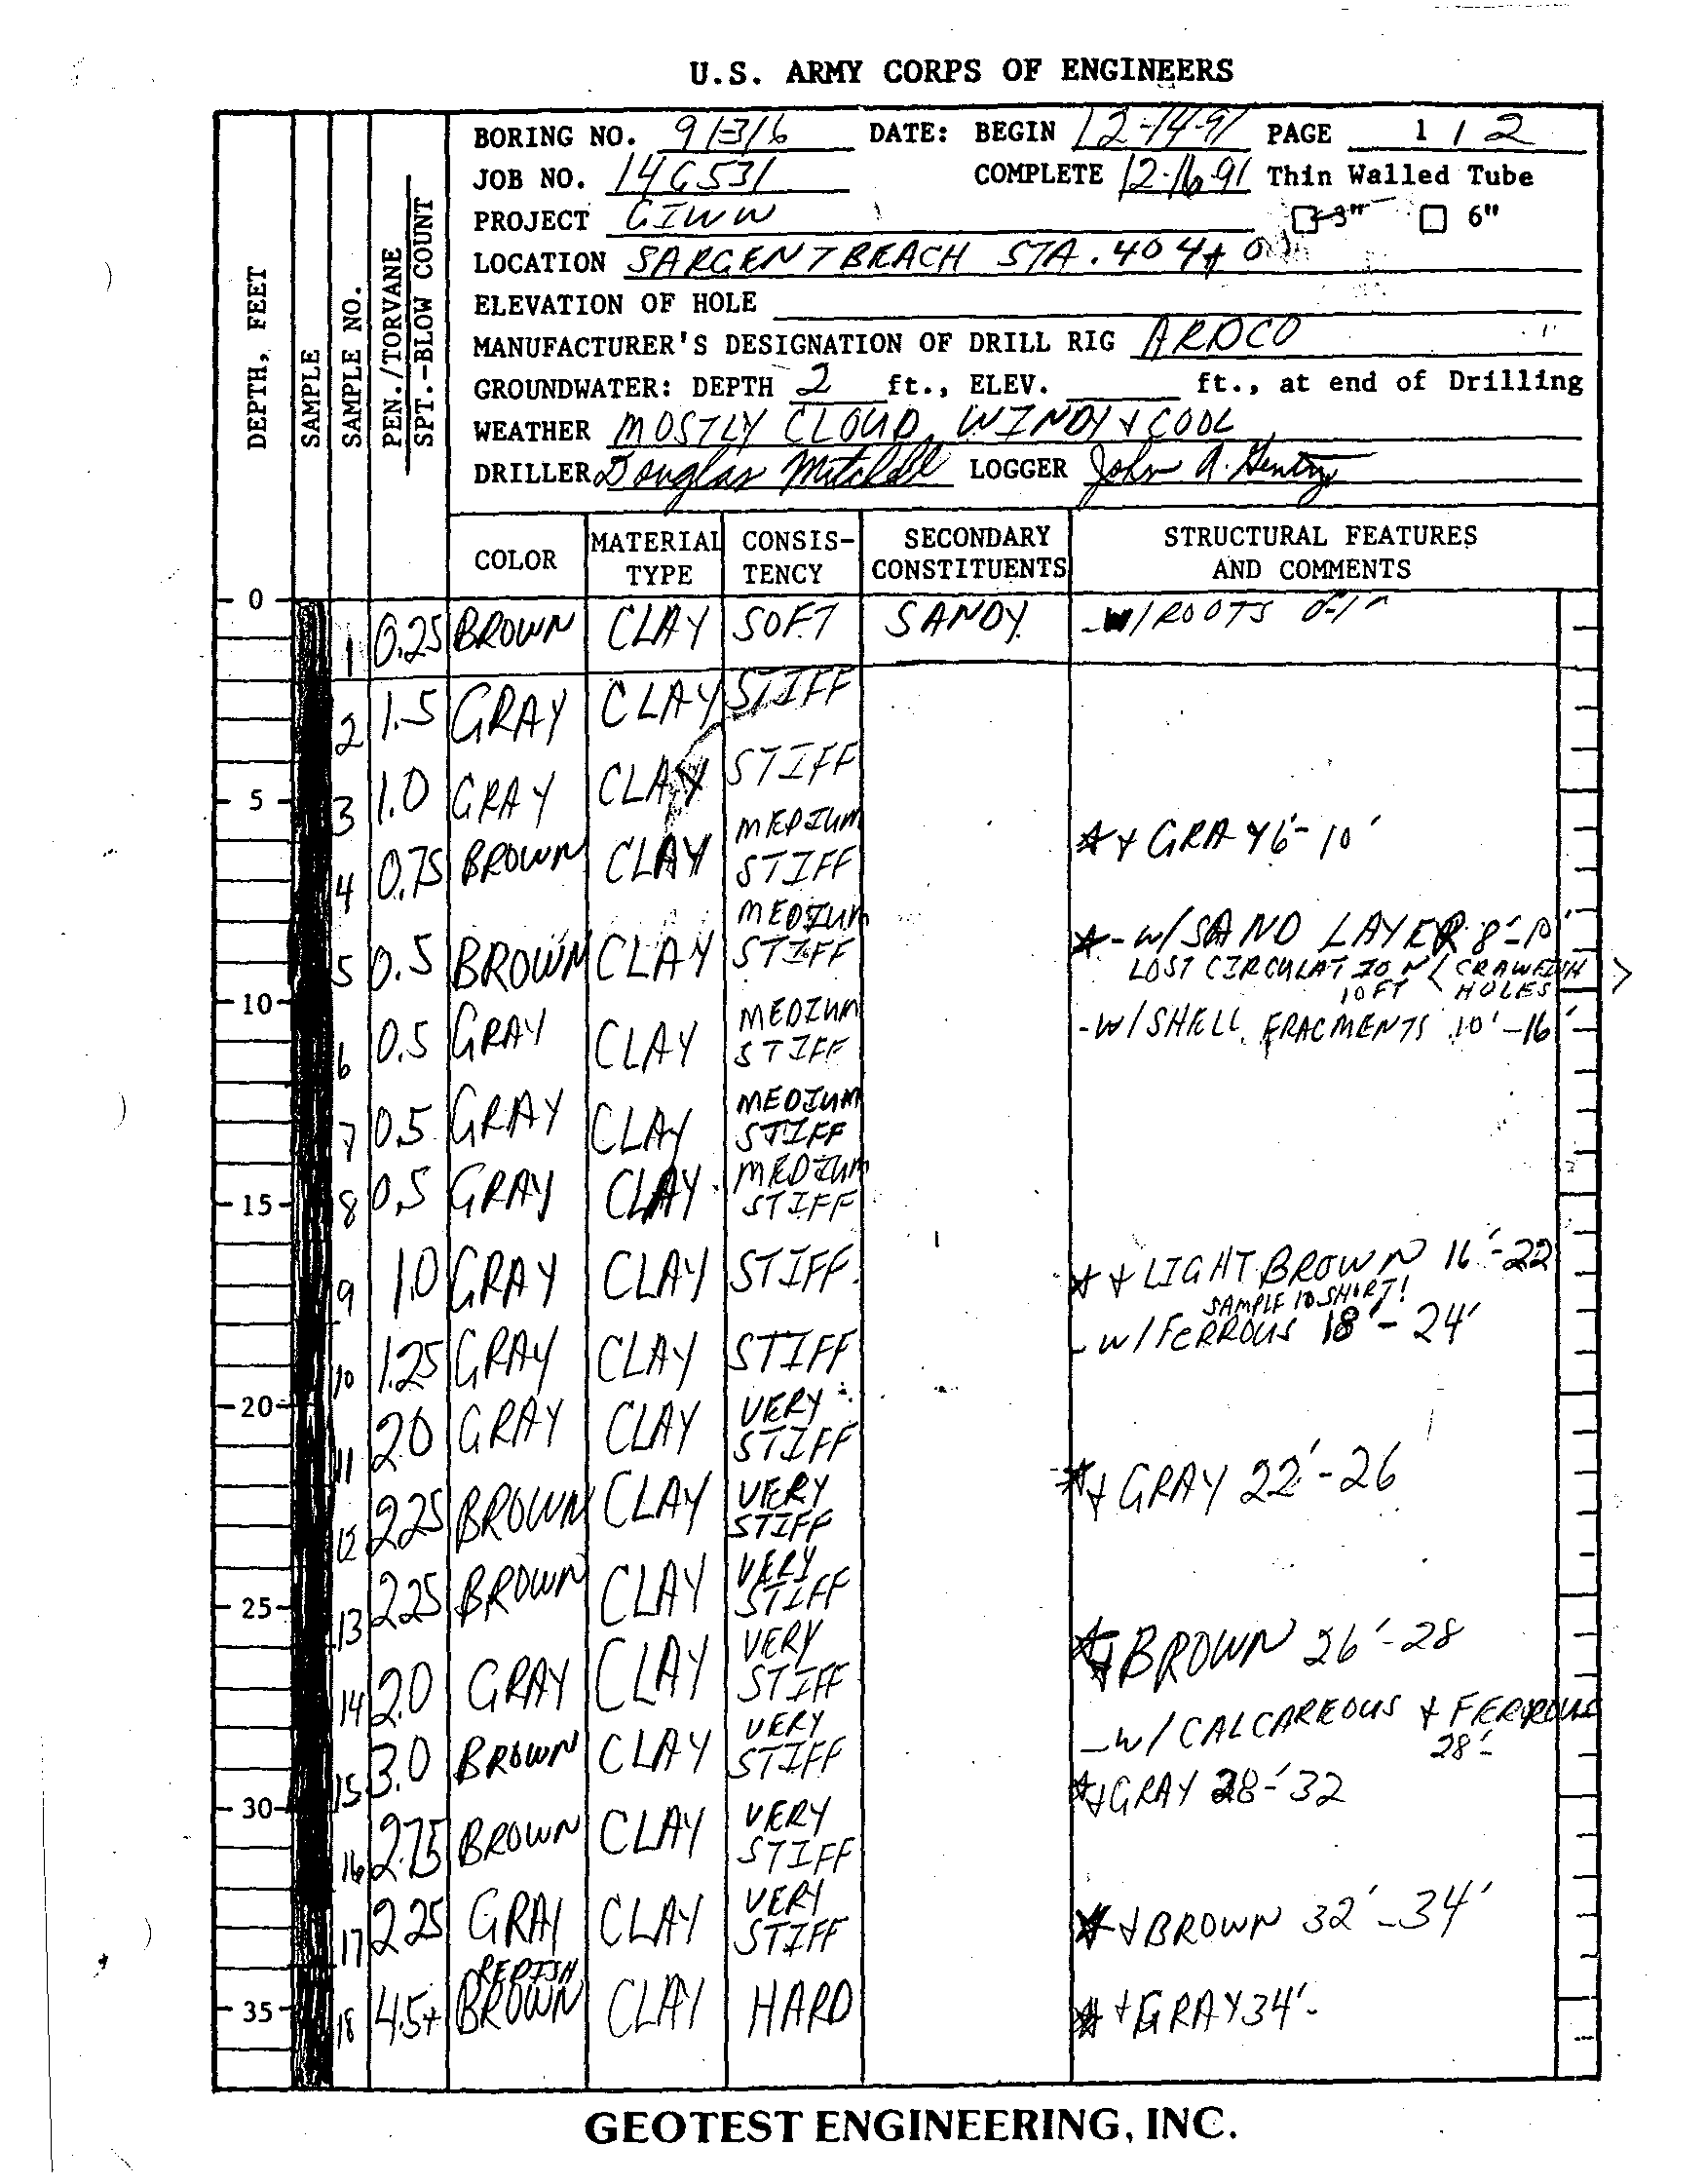 U.S. ARMY CORPS OF ENGINEERS
BORING NO. 91-316 DATE: BEGIN 12-14-91 PAGE 1 / 2
JOB NO. 14G531 COMPLETE 12-16-91 Thin Walled Tube
PROJECT GIWW 3" 6"
LOCATION SARGENT BEACH STA. 404+0
ELEVATION OF HOLE
MANUFACTURER'S DESIGNATION OF DRILL RIG ARDCO
GROUNDWATER: DEPTH 2 ft., ELEV. ft., at end of Drilling
WEATHER MOSTLY CLOUD, WINDY + COOL
DRILLER Douglas Mitchell LOGGER John A. Gentry
DEPTH, FEET
SAMPLE
SAMPLE NO.
PEN./TORVANE
SPT.-BLOW COUNT
COLOR MATERIAL TYPE CONSIS-TENCY SECONDARY CONSTITUENTS STRUCTURAL FEATURES AND COMMENTS
0
1 0.25 BROWN CLAY SOFT SANDY -W/ROOTS 0-1'
2 1.5 GRAY CLAY STIFF
5
3 1.0 GRAY CLAY STIFF
4 0.75 BROWN CLAY MEDIUM STIFF * + GRAY 6'-10'
5 0.5 BROWN CLAY MEDIUM STIFF *-W/SAND LAYER 8'-10'
LOST CIRCULATION 10FT < CRAWFISH HOLES >
10
6 0.5 GRAY CLAY MEDIUM STIFF -W/SHELL FRAGMENTS 10'-16'
7 0.5 GRAY CLAY MEDIUM STIFF
15
8 0.5 GRAY CLAY MEDIUM STIFF
9 1.0 GRAY CLAY STIFF * + LIGHT BROWN 16'-22
SAMPLE 10 SHORT!
-W/FERROUS 18'-24'
10 1.25 GRAY CLAY STIFF
20
11 2.0 GRAY CLAY VERY STIFF
12 2.25 BROWN CLAY VERY STIFF *+ GRAY 22'-26
25
13 2.25 BROWN CLAY VERY STIFF
14 2.0 GRAY CLAY VERY STIFF *+ BROWN 26'-28
15 3.0 BROWN CLAY VERY STIFF -W/CALCAREOUS + FERROUS 28'-
*+GRAY 28-'32
30
16 2.75 BROWN CLAY VERY STIFF
17 2.25 GRAY CLAY VERY STIFF *+BROWN 32'-34'
35
18 4.5+ REDISH BROWN CLAY HARD *+GRAY 34'-
GEOTEST ENGINEERING, INC.